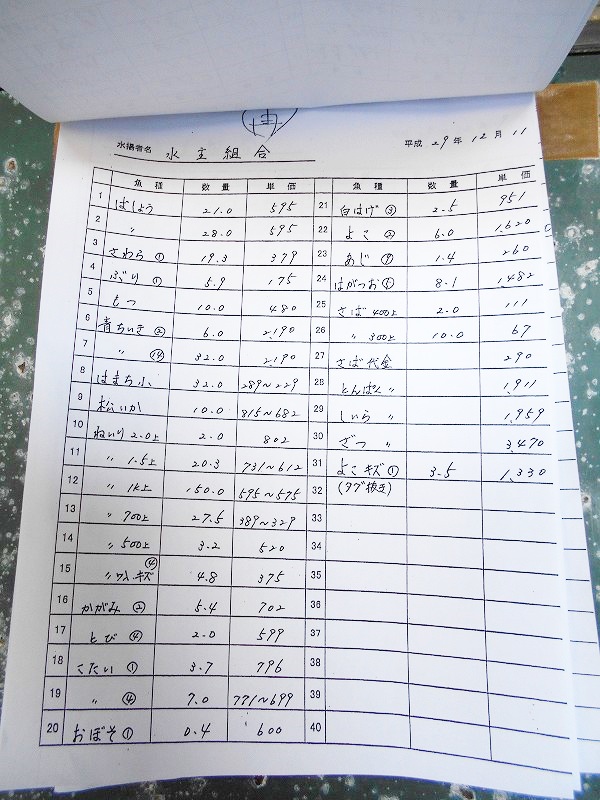 水揚者名 水主組合
平成 29年 12月 11
魚種 数量 単価
1 ばしょう 21.0 595
2 〃 28.0 595
3 さわら① 19.3 379
4 ぶり① 5.9 175
5 もつ 10.0 480
6 青ちいき② 6.0 2,190
7 〃 ⑭ 32.0 2,190
8 はまち小 32.0 289~229
9 松いか 10.0 815~682
10 ねいり 2.0上 2.0 802
11 〃 1.5上 20.3 731~612
12 〃 1K上 150.0 595~575
13 〃 700上 27.5 389~329
14 〃 500上 3.2 520
15 〃 キズ ④ 4.8 375
16 かがみ② 5.4 702
17 とび④ 2.0 599
18 こだい① 3.7 796
19 〃 ④ 7.0 771~699
20 おぼそ① 0.4 600
魚種 数量 単価
21 白はげ③ 2.5 951
22 よこ② 6.0 1,620
23 あじ 1.4 260
24 はがつお 8.1 1,482
25 さば 400上 2.0 111
26 〃 300上 10.0 67
27 さば代金 290
28 とんぱく 〃 1,911
29 しいら 〃 1,959
30 ざつ 〃 3,470
31 よこキズ① 3.5 1,330
32 (タグ抜き)
33
34
35
36
37
38
39
40